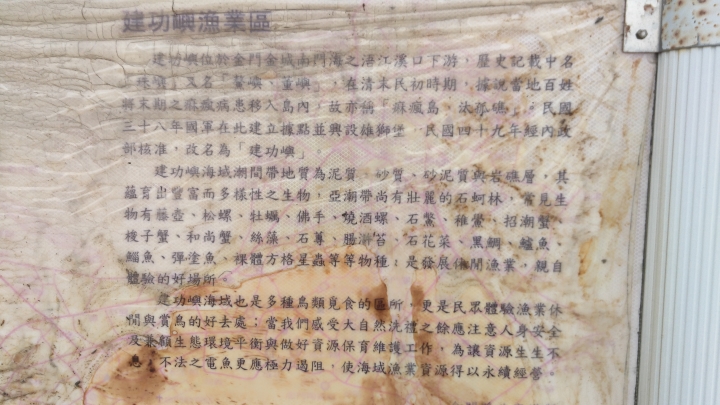 建功嶼漁業區
建功嶼位於金門金城南門海之浯江溪口下游，歷史記載中名
「珠嶼」又名「鱟嶼、董嶼」，在清末民初時期，據說當地百姓
將末期之痲瘋病患移入島內，故亦稱「痲瘋島、」。民國
三十八年國軍在此建立據點並興設雄獅堡，民國四十九年經內政
部核准，改名為「建功嶼」。
建功嶼海域潮間帶地質為泥質、砂質、砂泥質與岩礁層，其
蘊育出豐富而多樣性之生物，亞潮帶尚有壯麗的石蚵林，常見生
物有藤壺、松螺、牡蠣、佛手、燒酒螺、石鱉、稚鱟、招潮蟹、
梭子蟹、和尚蟹、絲藻、石蓴、腸滸苔、石花菜、黑鯛、鱸魚、
鯔魚、彈塗魚、裸體方格星蟲等等物種；是發展休閒漁業，親自
體驗的好場所。
建功嶼海域也是多種鳥類覓食的區所，更是民眾體驗漁業休
閒與賞鳥的好去處；當我們感受大自然洗禮之餘應注意人身安全
及兼顧生態環境平衡與做好資源保育維護工作，為讓資源生生不
息，不法之電魚更應極力遏阻，使海域漁業資源得以永續經營。